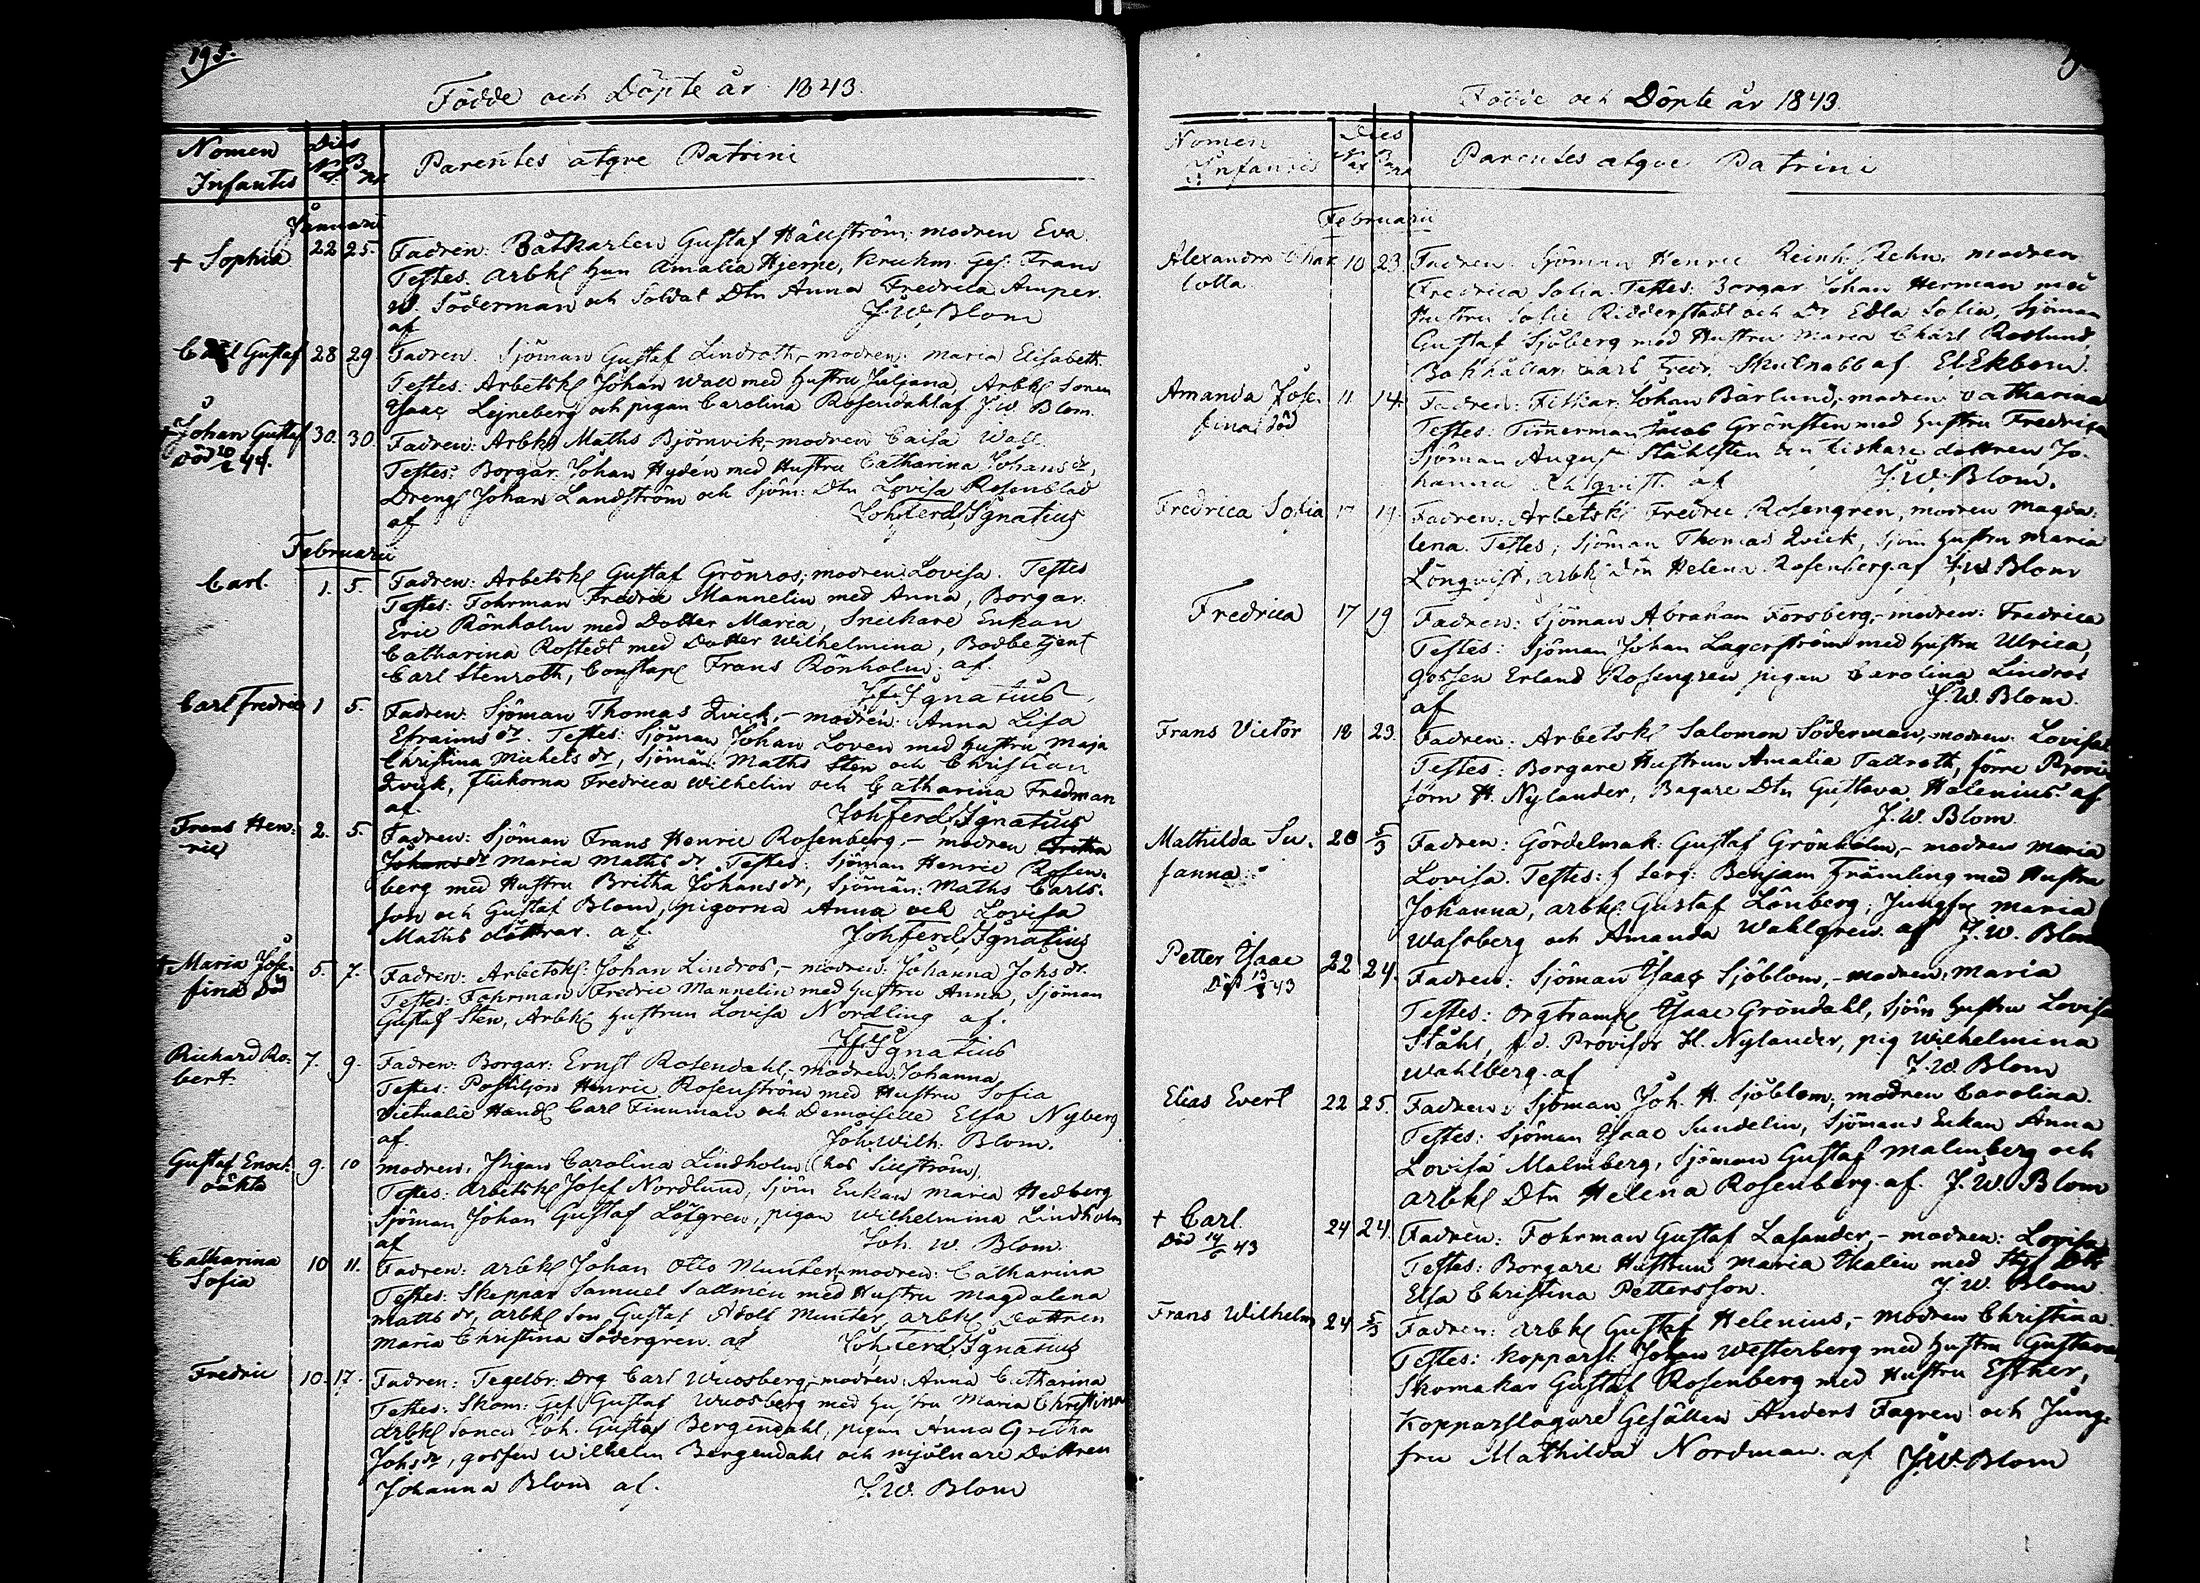 195.
Födde och Döpte år 1843.
Nomen Infantis
Dies
Nat. Bnat
Parentes atqve Patrini
Januarii
+ Sophia 22 25. Fadren: Båtkarlen Gustaf Hällström; modren Eva.
Testes. Arbk hun Amalia Hjerpe, krukm. Ges: Frans
W. Söderman och Soldat Dtn Anna Fredrica Amper.
af J. W. Blom
Carl Gustaf 28 29 Fadren: Sjöman Gustaf Lindroth,- modren: Maria Elisabeth.
Testes: Arbetsk Johan Wall med hustru Juljana, Arbk Sonen
Isaac Lejneberg och pigan Carolina Rosendahl af J. W. Blom.
+ Johan Gustaf 30. 30. Fadren: Arbk Maths Björnvik,- modren Caisa Wass.
död 44. Testes: Borgar. Johan Hydén med Hustru Catharina Johans dr,
Dreng Johan Landström och Sjöm: Dtn Lovisa Rosenblad
af Joh ferd. Ignatius
Februarii
Carl. 1. 5. Fadren: Arbetsk Gustaf Grönros; modren: Lovisa. Testes
Testes: Fohrman Fredric Mannelin med Anna, Borgar.
Eric Rönholm med Dotter Maria, Snickare Enkan
Catharina Rostedt med Dotter Wilhelmina, Bodbetjent
Carl Stenroth, Constap Frans Rönholm. af.
J. f. Ignatius
Carl Fredric 1 5. Fadren: Sjöman Thomas Qvick,- modren: Anna Lisa
Efraims dr. Testes: Sjöman Johan Loven med hustru Maja
Christina Michels dr, Sjömän: Maths Sten och Christian
Qvick, flickorna Fredrica Wilhelin och Catharina Fredman
af. Joh ferd. Ignatius
Frans Hen- 2. 5. Fadren: Sjöman Frans Henric Rosenberg,- modren Britha
ric Johans dr Maria Maths dr. Testes: Sjöman Henric Rosen-
berg med Hustru Britha Johans dr, Sjömän: Maths Carls-
son och Gustaf Blom, pigorna Anna och Lovisa
Maths döttrar. af. Joh ferd. Ignatius
+ Maria Jose- 5. 7. Fadren: Arbetsk: Johan Lindros,- modren: Johanna Johs dr.
fina död Testes: Fohrman Fredric Mannelin med hustru Anna, Sjöman
Gustaf Sten, Arbk hustrun Lovisa Nordling af.
J. f. Ignatius
Richard Ro- 7. 9. Fadren: Borgar: Ernst Rosendahl,- modren: Johanna
bert Testes: Postiljon Henric Rosenström med Hustru Sofia
Victualie Handl Carl Finnman och Demoiselle Elsa Nyberg
af. Joh. Wilh. Blom.
Gustaf Enoch 9. 10 modren: Pigan Carolina Lindholm (hos Sillström),
oäkta Testes: Arbetsk Josef Nordlund, Sjöm Enkan Maria Hedberg
Sjöman Johan Gustaf Löfgren, pigan Wilhelmina Lindholm
af Joh. W. Blom.
Catharina 10 11. Fadren: Arbk Johan Otto Munter,- modren: Catharina
Sofia Testes: Skeppar Samuel Sallmén med Hustru Magdalena
Matts dr, Arbk Son Gustaf Adolf Munter, Arbk Dottren
Maria Christina Södergren. af Joh ferd. Ignatius
Fredric 10. 17. Fadren: Tegelbr: Drg Carl Wuosberg,- modren: Anna Catharina
Testes: Skom: Gef Gustaf Wuosberg med hustru Maria Christina
Arbk Sonen Joh. Gustaf Bergendahl, pigan Anna Gretha
Johs dr, gossen Wilhelm Bergendahl och mjölnare Dottren
Johanna Blom af. J. W. Blom
Födde och Döpte år 1843.
Nomen Infantis
Dies
Parentes atqve Patrini
Februarii
Alexandra Char- 10 23. Fadren: Sjöman Henric Reinh. Rehn, modren
lotta. Fredrica Sofia. Testes: Borgar. Johan Herman med
Hustru Sofie Ridderstadt och Dr Edla Sofia, Sjöman
Gustaf Sjöberg med Hustru Maria Charl Roslund,
Bokhållar. Carl Fredr. Skulnabb af. El Ekbom.
Amanda Jose- 11 14. Fadren: Fiskar. Johan Bärlund,- modren Catharina
fina död Testes: Timerman Jacob Grönsten med hustru Fredrica
Sjöman August Ståhlsten fiskare dottren Jo-
hanna af J. W. Blom.
Fredrica Sofia 17 19. Fadren: Arbetsk Fredric Rosengren, modren Magda-
lena. Testes: Sjöman Thomas Qvick, Sjöm hustru Maria
Lönqvist, arbk dtn Helena Rosenberg. af J. W. Blom
Fredrica 17 19 Fadren: Sjöman Abraham Forsberg,- modren: Fredrica
Testes: Sjöman Johan Lagerström med hustru Ulrica,
gossen Erland Rosengren pigan Carolina Lindros
af J. W. Blom.
Frans Victor 18 23. Fadren: Arbetsk Salomon Söderman, modren: Lovisa
Testes: Borgare Hustrun Amalia Tallroth, förre Provi-
sorn H. Nylander, Bagare Dtn Gustava Helenius. af
J. W. Blom.
Mathilda Su- 20 5/3 Fadren: Gördelmak: Gustaf Grönholm,- modren Maria
sanna. Lovisa. Testes: Serg: Benjam Främling med Hustru
Johanna, arbk: Gustaf Lönberg, Jungfr Maria
Wafsberg och Amanda Wahlgren. af J. W. Blom
Petter Isaac 22 24. Fadren: Sjöman Isaac Sjöblom,- modren: Maria
Död 43 Testes: Orgtramp Isaac Gröndahl, Sjöm hustru Lovisa
Ståhl, f.d. Provisor H. Nylander, pig Wilhelmina
Wahlberg. af J. W. Blom
Elias Evert 22 25. Fadren: Sjöman Joh. H. Sjöblom; modren Carolina.
Testes: Sjöman Isaac Sundelin, Sjömans Enkan Anna
Lovisa Malmberg, Sjöman Gustaf Malmberg och
arbk Dtn Helena Rosenberg. af. J. W. Blom
+ Carl. 24 24. Fadren: Fohrman Gustaf Lasander,- modren: Lovisa
Död 14/6 43 Testes: Borgare Hustrun Maria Thalin med Styf Dtr
Elsa Christina Pettersson. J. W. Blom.
Frans Wilhelm 24 5/3 Fadren: Arbk Gustaf Helenius,- modren Christina.
Testes: Kopparsl: Johan Westerberg med hustru Gustava,
Skomakar Gustaf Rosenberg med Hustru Esther,
Kopparslagare Gesällen Anders Fagren och Jung-
fru Mathilda Nordman. af J. W. Blom